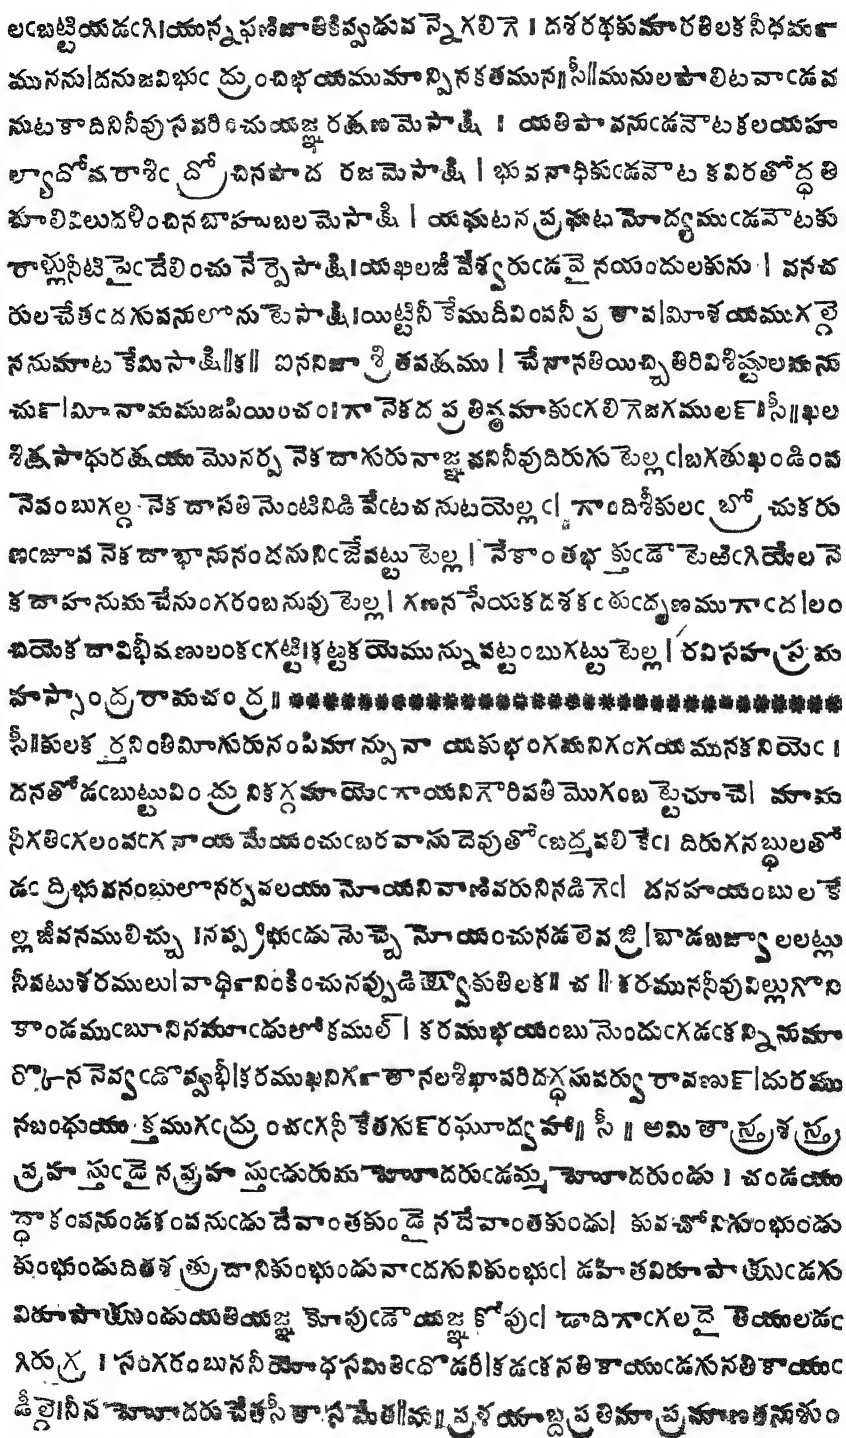 లఁబట్టియడఁగి।యున్నఫణిజాతికివ్వడువ న్నెగలిగె । దశరథకుమారతిలకనీధమన౯
మునను।దనుజవిభుఁ ద్రుంచిభయముమాన్పినకతమున॥సీ॥మునులపాలిటవాఁడవ
నుటకాదినినీవుసవరించుయజ్ఞరక్షణమెసాక్షి । యతిపావనుఁడవౌటకలయహ
ల్యాదోషరాశిఁ ద్రోచినపాద రజమెసాక్షి । భువనాధికుఁడవౌట కవిరతోద్ధతి
శూలివిలుదళించినబాహుబలమెసాక్షి । యఘటనప్రఘటనోద్యముఁడవౌటకు
రాళ్లునీటిపైఁ దేలించునేర్పెసాక్షి।యఖిలజీవేశ్వరుఁడవై నయందులకును । వనచ
రులచేతఁదగువనులోను టెసాక్షి।యిట్టినీ కేముదీవింపనీ ప్రతాప।మీశయముగల్గె
ననుమాట కేమిసాక్షి॥క॥ ఐననిజా శ్రితవక్షము । చేనానతియిచ్చితిరివిశిష్టులమను
చు౯।మీ నామముజపియించం।గా నెకద ప్రతిష్ఠమాకుఁగలిగెజగముల౯॥సీ॥ఖల
శిక్షసాధురక్షయు మొనర్ప నెకదాగురునాజ్ఞవనినీవుదిరుగు టెల్లఁ।బగతుఖండింప
నెపంబుగల్గ నెక దాసతి నెంటినిడి వేఁటచనుటయెల్లఁ। గాందిశీకులఁ బ్రో చుకరు
ణఁజూప నెకదాభానునందనునిఁజేపట్టు టెల్ల। నేకాంతభ క్తుఁడౌ టెఱిఁగియేల నె
క దాహనుమ చేనుంగరంబనుపు టెల్ల। గణన సేయకదశకఁ ఠుఁదృణముగాఁద।లం
చియెక దావిభీషణులంకఁగట్టి।కట్టకయెమున్నుపట్టంబుగట్టు టెల్ల। రవిసహస్రమ
హస్సాంద్రరామచంద్ర॥
సీ॥కులక ర్తనింతిమీగురునంపిమాన్పునా యకుభంగమనిగంగయమునకనియెఁ ।
దనతోడఁబుట్టువిం ద్రునికగ్గమాయెఁగాయనిగౌరిపతి మొగంబ ట్టెచూచె। మామ
నీగతిఁగలంవఁగ నాయ మేయంచుఁబరవాసుదెవుతోఁబద్మపలికేఁ। దిరుగనబ్ధులతో
డఁ ద్రిభువనంబులొనర్పవలయు నోయనివాణివరునినడిగెఁ। దనహయంబుల కే
ల్లజీవనములిచ్చు ।నప్ప్రభుఁడు నెచ్చె నోయంచునడలెవజ్రి।బాడబజ్వాలలట్లు
నీవటుశరములు।వార్ధినింకించునప్పుడిక్ష్వాకుతిలక॥ చ ॥ కరముననీవువిల్లుగొని
కాండముఁబూనినమూఁడులోకముల్ । కరముభయంబు నెందుఁగడఁకన్నినుమా
ర్కొన నెవ్వఁడొవ్వుభీ।కరముఖనిర్గతానలశిఖాపరిదగ్ధసుపర్వు రావణు౯।దురము
నబంధుయు క్తముగఁద్రుంచఁగనీకేతగు౯రఘూద్వహా॥ సీ ॥ అమి తాస్త్రశస్త్ర
ప్రహ స్తుఁడై నప్రహ స్తుఁడురుమ హోదరుఁడమ్మ హోదరుండు । చండయు
ద్ధాకంపనుండకంపనుఁడు దేవాంతకుండై నదేవాంతకుండు। కుపచోనిగుంభుండు
కుంభుండుదితశ త్రుదానికుంభుండువాఁదగునికుంభుఁ। డహితవిరూపాక్షుఁడగు
విరూపాక్షుండుయతియజ్ఞ కోపుఁడౌయజ్ఞకోపుఁ। డాదిగాఁగలదై తెయులడఁ
గిరుగ్ర । సంగరంబుననీయోధసమితిఁదొడరి।కడఁకనతికాయుఁడగునతికాయుఁ
డీల్గె।నీన హోదరుచేతసీతాసమేత॥మ॥ ప్రళయాబ్దప్రతిమాప్రమాణతనుశుం